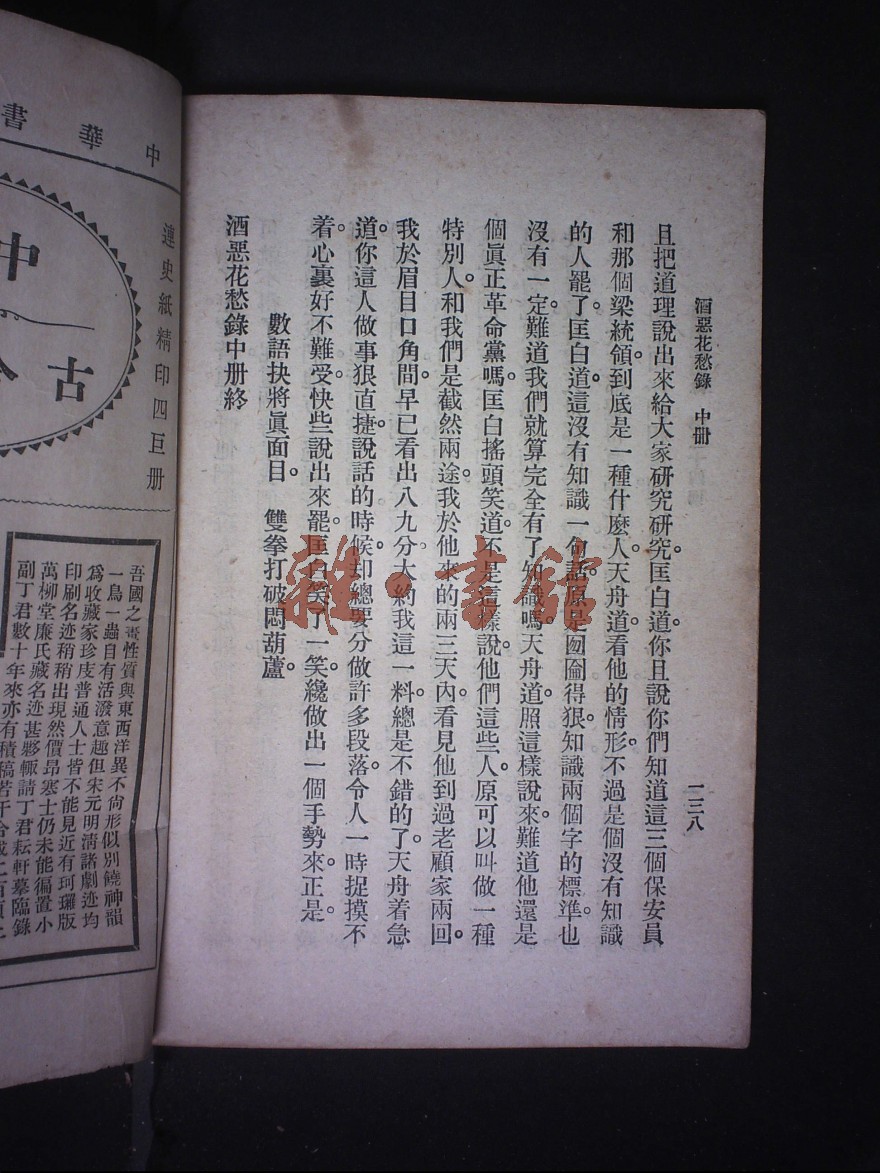 酒惡花愁錄　中冊
一三八
且把道理說出來給大家研究研究。匡白道。你且說你們知道這三個保安員
和那個梁統領。到底是一種什麽人。天舟道。看他的情形。不過是個沒有知識
的人罷了。匡白道。這沒有知識一句話。原是囫圇得狠。知識兩個字的標準。也
沒有一定。難道我們就算完全有了知識嗎。天舟道。照這樣說來。難道他還是
個眞正革命黨嗎。匡白搖頭笑道。不是這樣說。他們這些人。原可以叫做一種
特別人。和我們是截然兩途。我於他來的兩三天內。看見他到過老顧家兩回。
我於眉目口角間。早已看出八九分。大約我這一料。總是不錯的了。天舟着急
道。你這人做事狠直捷。說話的時候。却總要分做許多段落。令人一時捉摸不
着。心裏好不難受。快些說出來罷。匡白笑了一笑。纔做出一個手勢來。正是。
數語抉將眞面目。　雙拳打破悶葫蘆。
酒惡花愁錄中册終
雜·書館
中華書
連史紙精印四巨册
中
古
吾國之畫性質與東西洋異不尙形似別饒神韻
一鳥一蟲自有活潑意趣但宋元明淸諸劇迹均
爲收藏家珍庋普通人士皆不能見近有珂瓓版
印刷名迹稍稍出現然價昂寒士仍未能徧置小
萬柳堂廉氏藏名迹甚夥輒請丁君耘軒摹臨錄
副丁君數十年來亦有積稿若干合成二百頁上